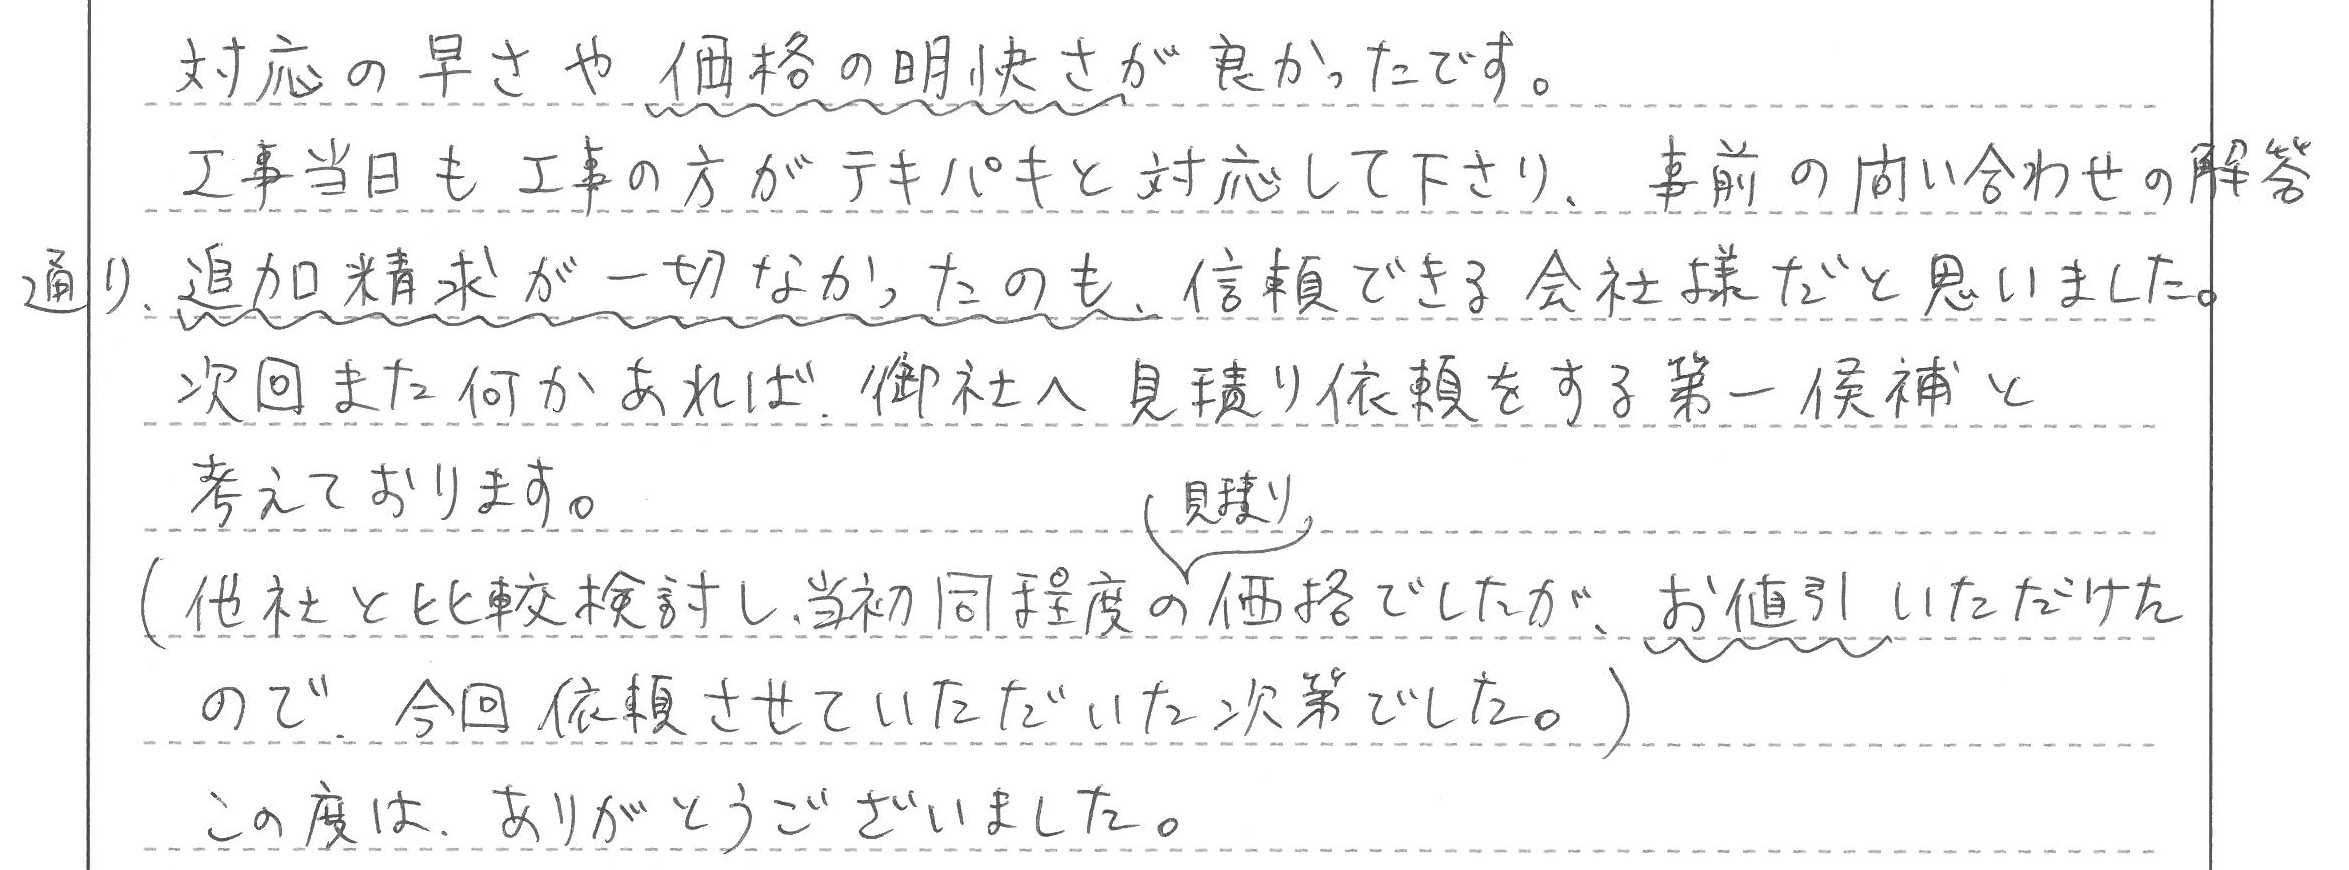 対応の早さや価格の明快さが良かったです。
工事当日も工事の方がテキパキと対応して下さり、事前の問い合わせの解答
通り、追加精求が一切なかったのも、信頼できる会社様だと思いました。
次回また何かあれば、御社へ見積り依頼をする第一候補と
考えております。
見積り
(他社と比較検討し、当初同程度の価格でしたが、お値引いただけた
ので、今回依頼させていただいた次第でした。)
この度は、ありがとうございました。